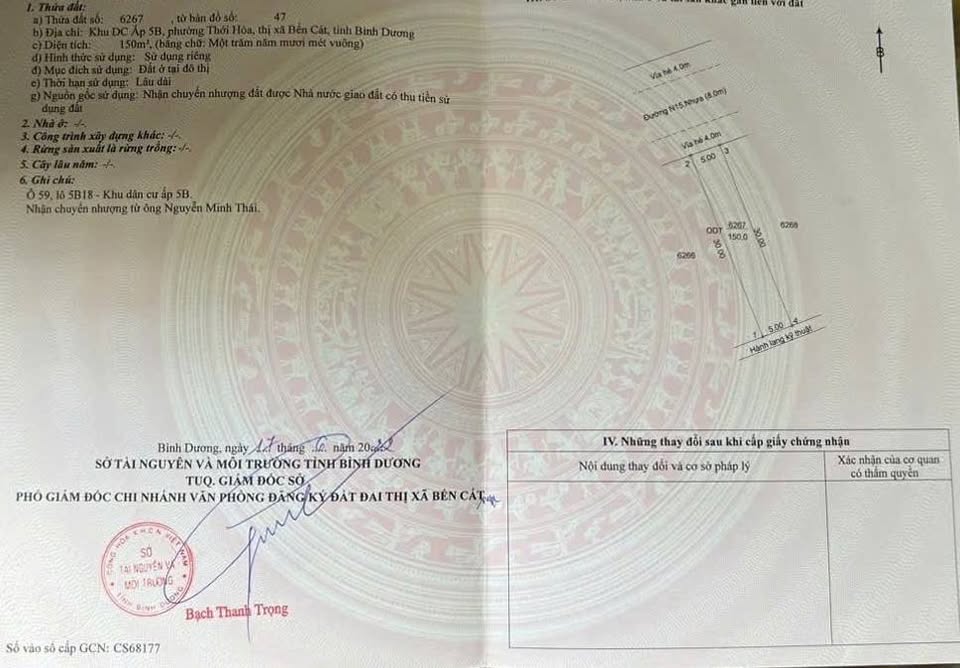 1. Thửa đất:
a) Thửa đất số: 6267 , tờ bản đồ số: 47
b) Địa chỉ: Khu DC Ấp 5B, phường Thới Hòa, thị xã Bến Cát, tỉnh Bình Dương
c) Diện tích: 150m², (bằng chữ: Một trăm năm mươi mét vuông)
d) Hình thức sử dụng: Sử dụng riêng
đ) Mục đích sử dụng: Đất ở tại đô thị
e) Thời hạn sử dụng: Lâu dài
g) Nguồn gốc sử dụng: Nhận chuyển nhượng đất được Nhà nước giao đất có thu tiền sử
dụng đất
2. Nhà ở: -/-.
3. Công trình xây dựng khác: -/-.
4. Rừng sản xuất là rừng trồng: -/-.
5. Cây lâu năm: -/-.
6. Ghi chú:
Ô 59, lô 5B18 - Khu dân cư ấp 5B.
Nhận chuyển nhượng từ ông Nguyễn Minh Thái.
Bình Dương, ngày 17 tháng năm 2022
SỞ TÀI NGUYÊN VÀ MÔI TRƯỜNG TỈNH BÌNH DƯƠNG
TUQ. GIÁM ĐỐC SỞ
PHÓ GIÁM ĐỐC CHI NHÁNH VĂN PHÒNG ĐĂNG KÝ ĐẤT ĐAI THỊ XÃ BẾN CÁT
CỘNG HÒA X.H.C.N VIỆT NAM
SỞ
TÀI NGUYÊN VÀ
MÔI TRƯỜNG
TỈNH BÌNH DƯƠNG
Bạch Thanh Trọng
Số vào sổ cấp GCN: CS68177
gắn liền với đất
B
Vỉa hè 4.0m
Đường N15,Nhựa (8.0m)
Vỉa hè 4.0m
2 5.00 3
ODT 6267
150,0
6268
6266
30.00
30.00
1 5.00 4
Hành lang kỹ thuật
IV. Những thay đổi sau khi cấp giấy chứng nhận
Nội dung thay đổi và cơ sở pháp lý
Xác nhận của cơ quan
có thẩm quyền